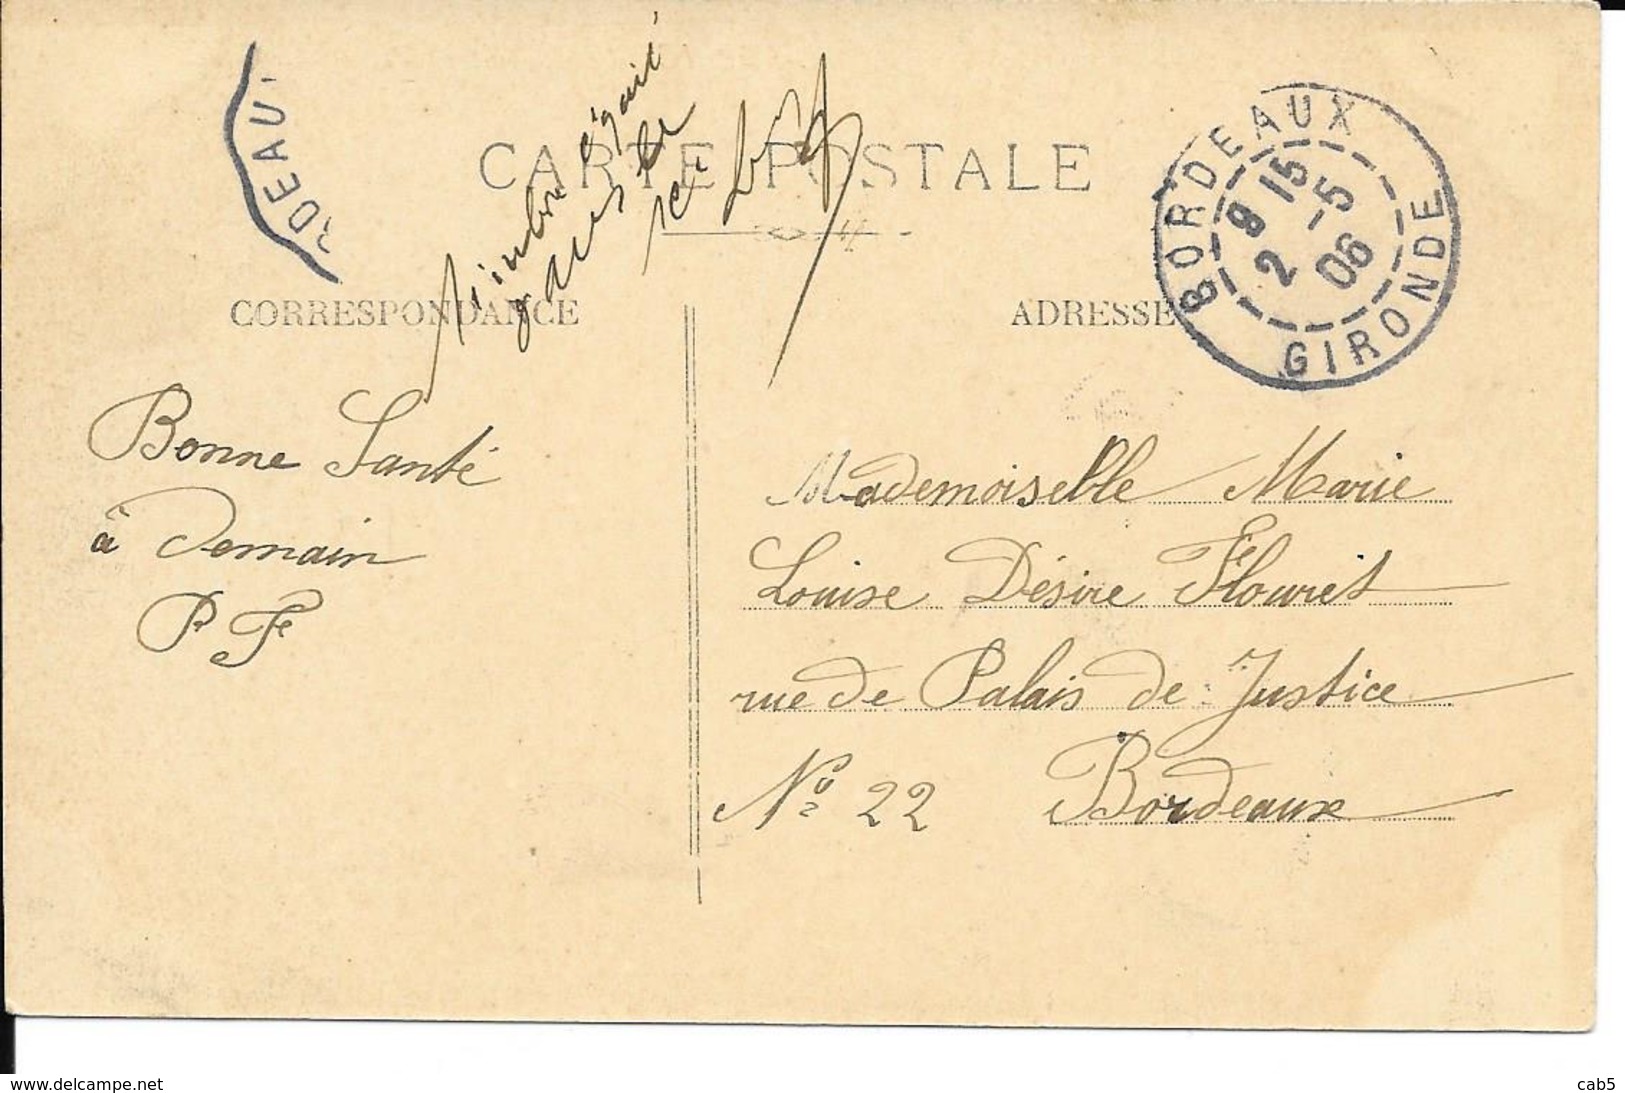 DEAU
CARTE POSTALE
BORDEAUX
9 15
2 -5
06
GIRONDE
CORRESPONDANCE
ADRESSE
Bonne Santé
à Demain
P F
Mademoiselle Marie
Louise Désire Flouret
rue de Palais de Justice
No 22 Bordeaux
www.delcampe.net
cab5